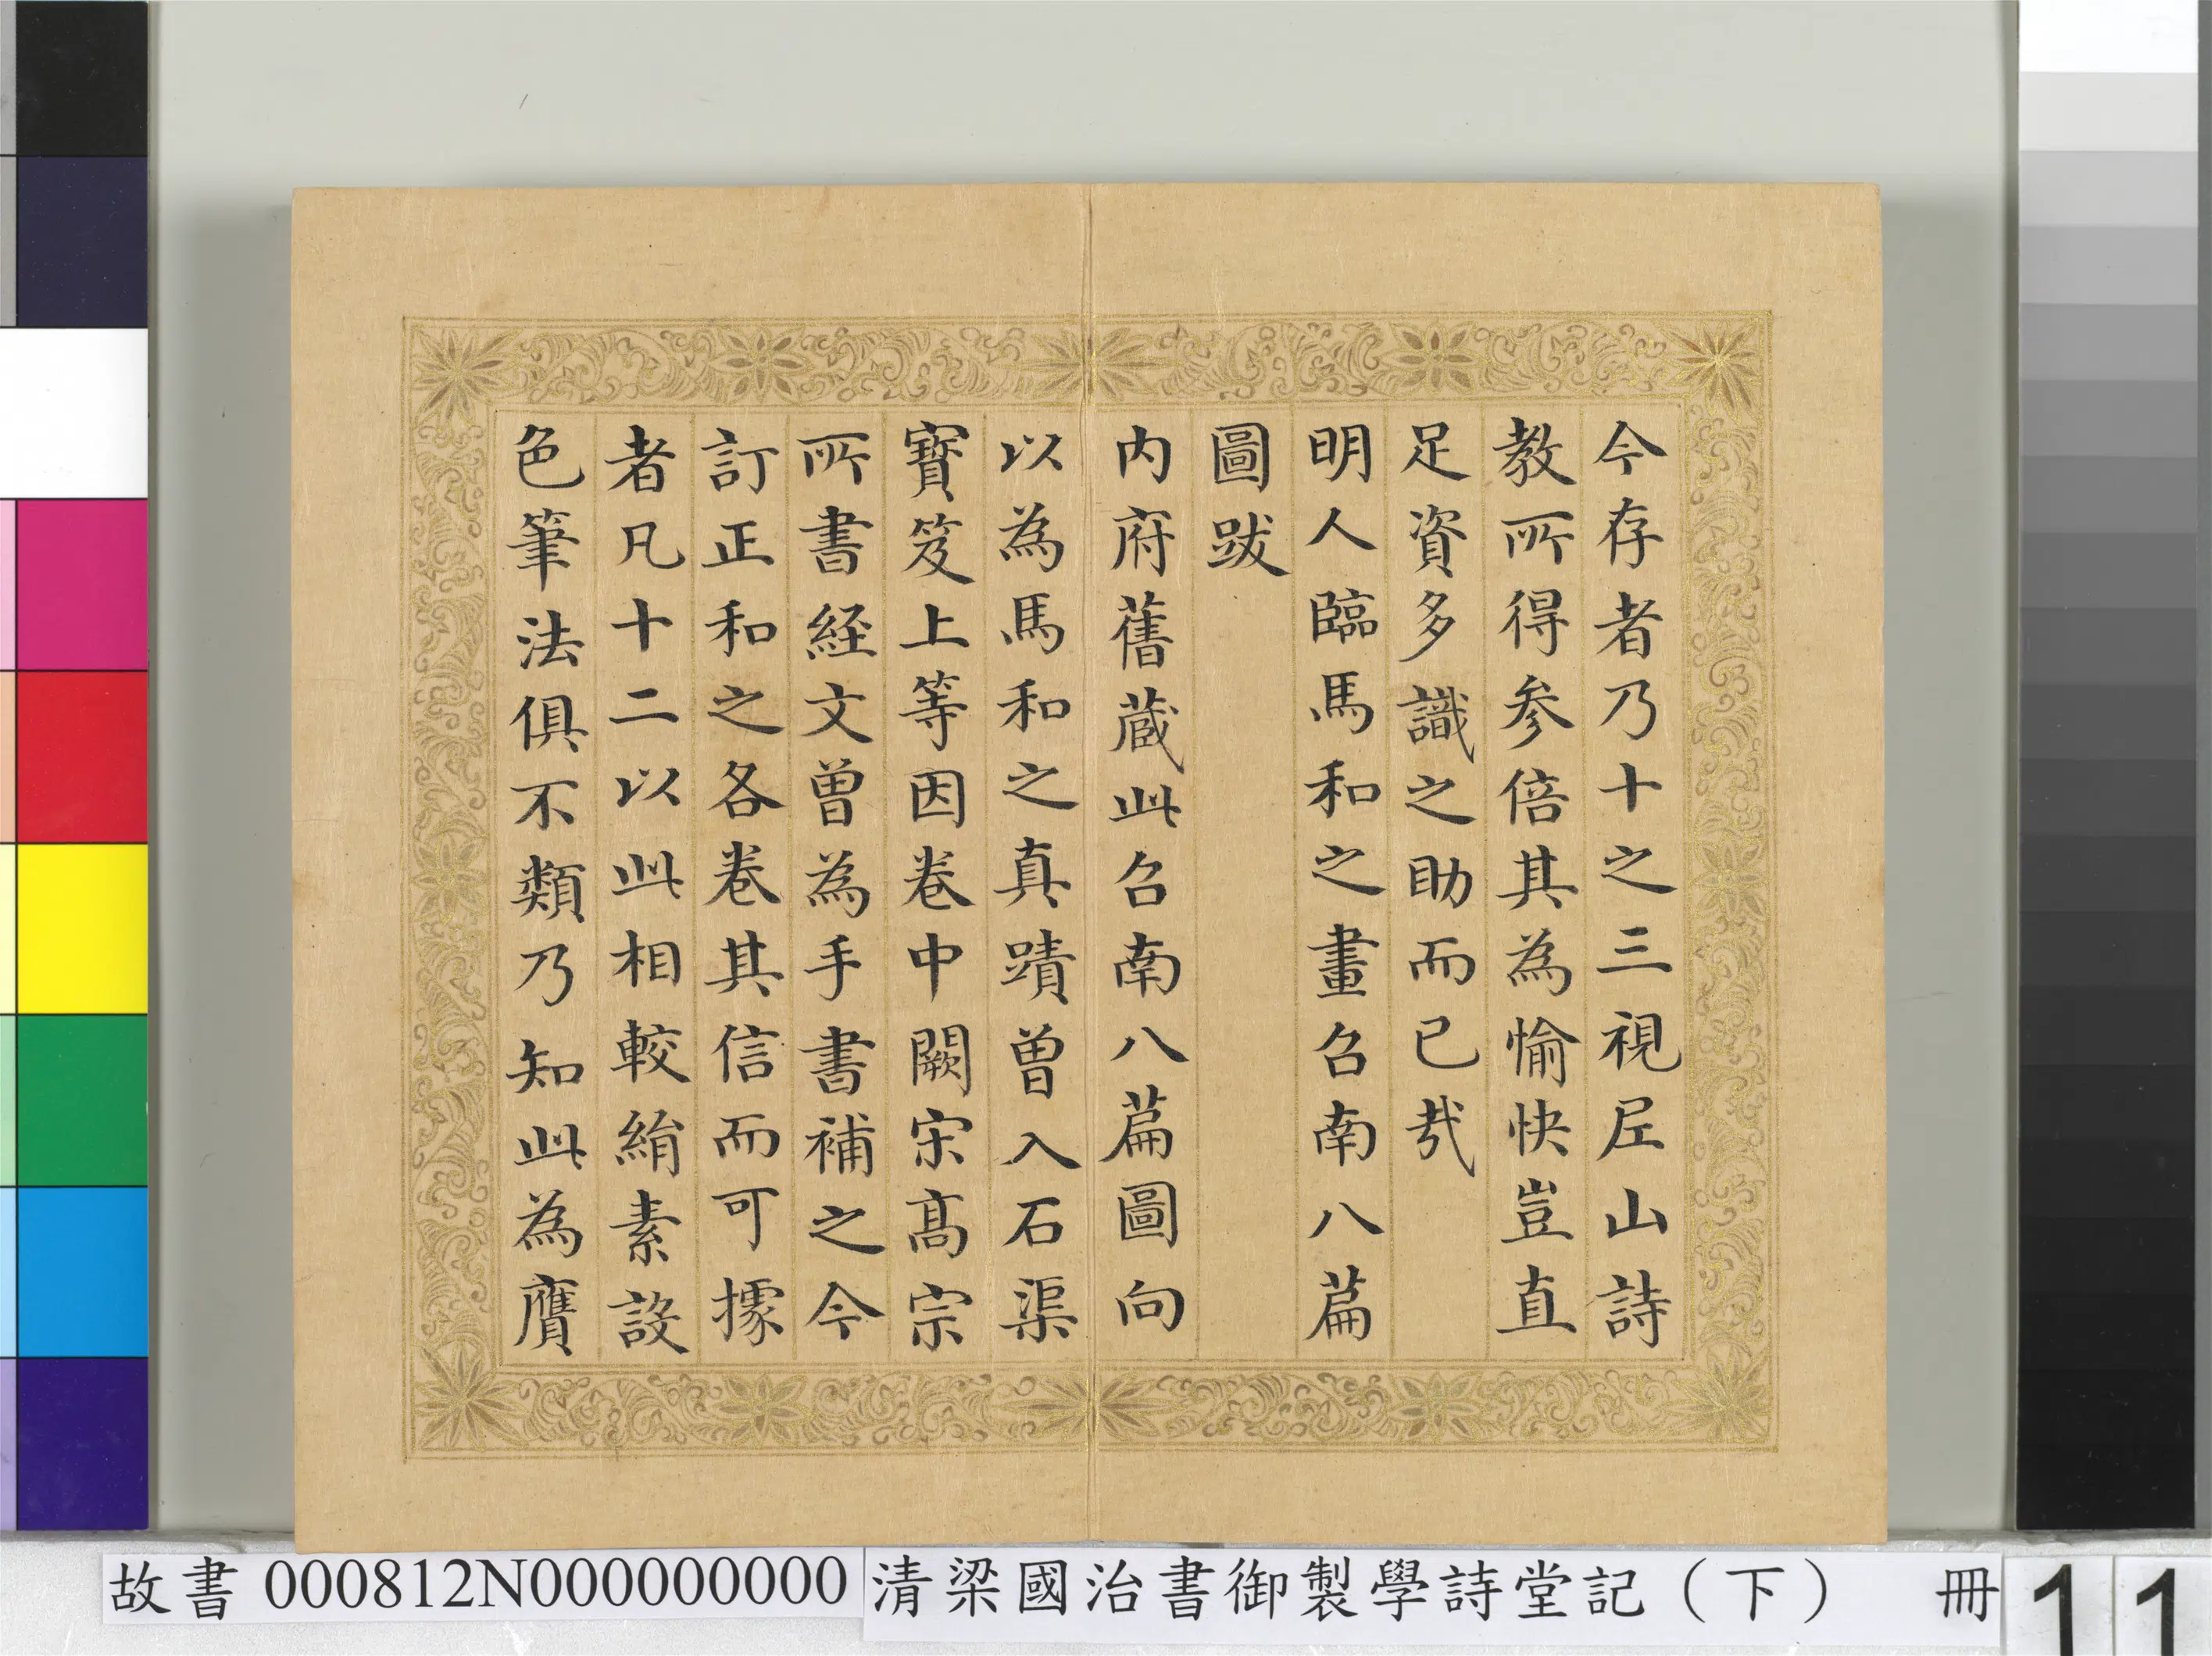 今存者乃十之三視㢤山詩
教所得參倍其為愉快豈直
足資多識之助而已哉
明人臨馬和之畫召南八篇
圖跋
内府舊蔵此召南八篇圖向
以為馬和之真蹟曾入石渠
寶笈上等因卷中闕宋髙宗
所書經文曾為手書補之今
訂正和之各卷其信而可據
者凡十二以此相較絹素設
色筆法俱不類乃知此為贋
故書 000812N000000000
清梁國治書御製學詩堂記（下） 冊 11